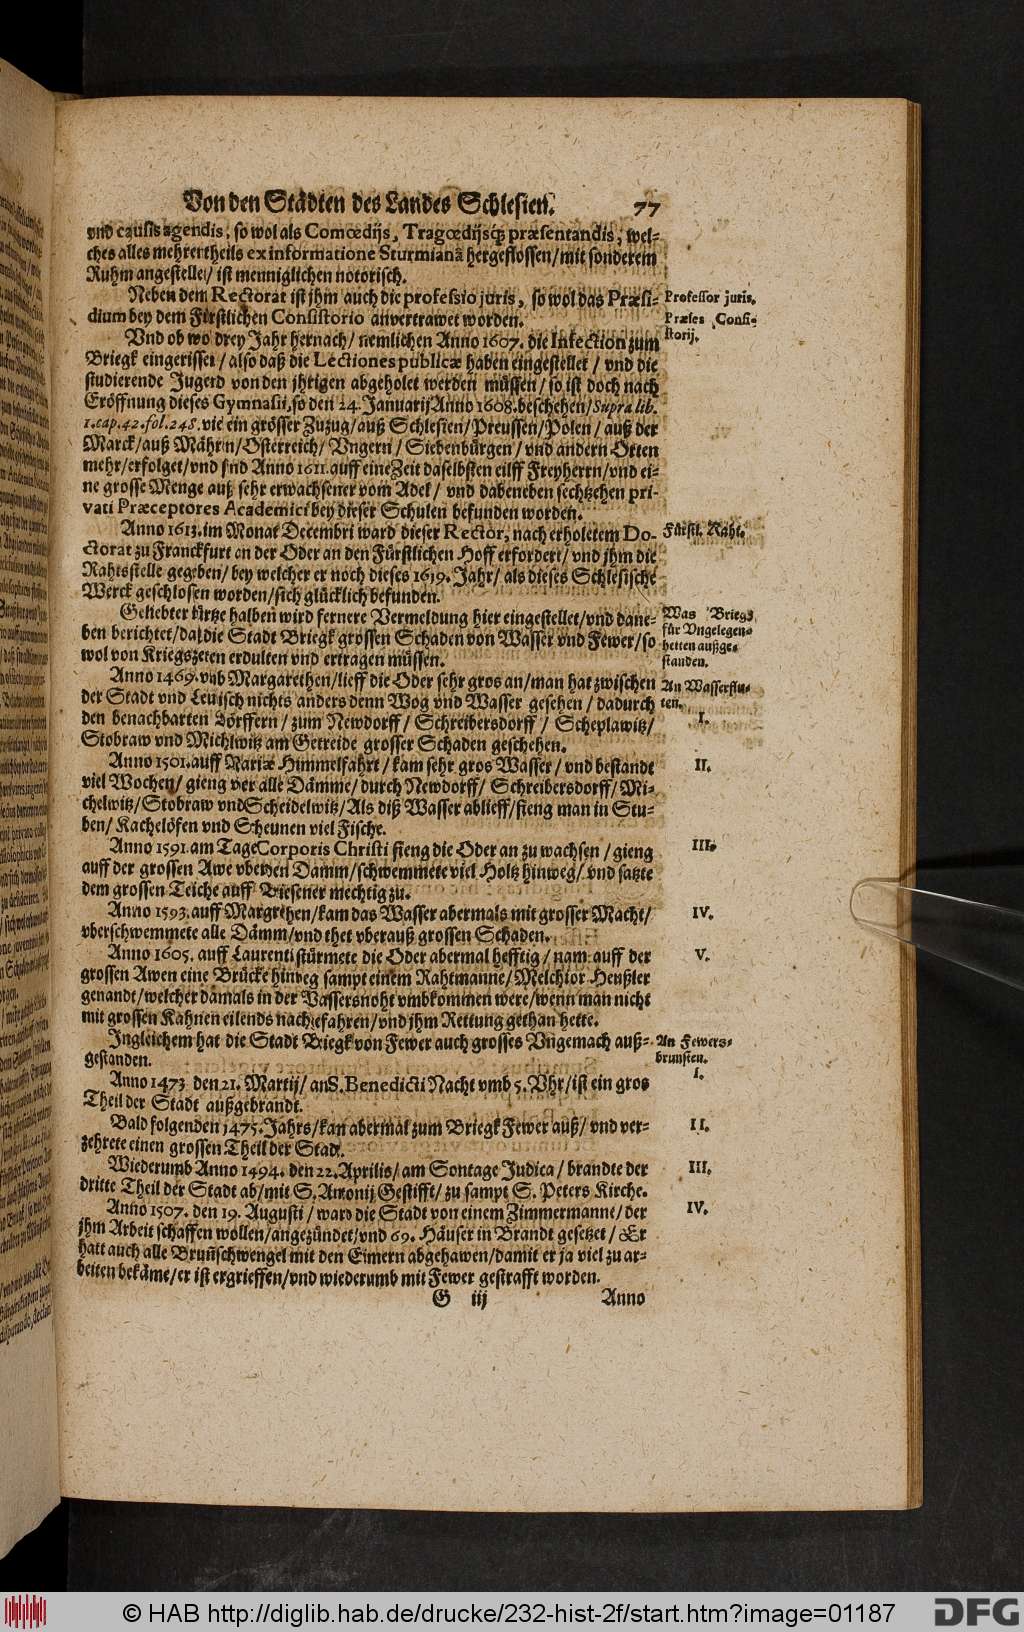 Von den Städten des Landes Schlesien. 77
vnd causis agendis, so wol als Comœdijs, Tragœdijsq; præsentandis, wel-
ches alles mehrertheils ex informatione Sturmianâ hergeflossen/ mit sonderem
Ruhm angestellet/ ist menniglichen notorisch.
Neben dem Rectorat ist jhm auch die professio juris, so wol das Præsi-
Professor juris.
dium bey dem Fürstlichen Consistorio anvertrawet worden.
Præses Consi-
storij.
Vnd ob wo drey Jahr hernach/ nemlichen Anno 1607. die Infection zum
Briegk eingerisset/ also daß die Lectiones publicæ haben eingestellet/ vnd die
studierende Jugend von den jhrigen abgeholet werden müssen/ so ist doch nach
Eröffnung dieses Gymnasii, so den 24. Januarij Anno 1608. beschehen/ Supra lib.
1. cap. 42. fol. 248. vie ein grösser Zuzug/ auß Schlesien/ Preussen/ Polen/ auß der
Marck/ auß Mährn/ Osterreich/ Vngern/ Siebenbürgen/ vnd andern Orten
mehr/ erfolget/ vnd sind Anno 1611. auff eine Zeit daselbsten eilff Freyherrn/ vnd ei-
ne grosse Menge auß sehr erwachsener vom Adel/ vnd dabeneben sechtzehen pri-
vati Præceptores Academici bey dieser Schulen befunden worden.
Anno 1613. im Monat Decembri ward dieser Rector, nach erholetem Do-
Fürstl. Raht.
ctorat zu Franckfurt an der Oder an den Fürstlichen Hoff erfordert/ vnd jhm die
Rahtsstelle gegeben/ bey welcher er noch dieses 1619. Jahr/ als dieses Schlesische
Werck geschlossen worden/ sich glücklich befunden.
Geliebter kürtze halben wird fernere Vermeldung hier eingestellet/ vnd dane-
Was Briegk
ben berichtet/ daß die Stadt Briegk grossen Schaden von Wasser vnd Fewer/ so
für Vngelegen-
heiten außge-
wol von Kriegszeten erdulten vnd ertragen müssen.
standen.
Anno 1469. vmb Margarethen/ lieff die Oder sehr gros an/ man hat zwischen
An Wasserflu-
der Stadt vnd Leuisch nichts anders denn Wog vnd Wasser gesehen/ dadurch
ten.
den benachbarten Dörffern/ zum Newdorff/ Schreibersdorff/ Scheplawitz/
I.
Stobraw vnd Michlwitz am Getreide grosser Schaden geschehen.
Anno 1501. auff Mariæ Himmelfahrt/ kam sehr gros Wasser/ vnd bestandt
II.
viel Wochen/ gieng vber alle Dämme/ durch Newdorff/ Schreibersdorff/ Mi-
chelwitz/ Stobraw vnd Scheidelwitz/ Als diß Wasser ablieff/ fieng man in Stu-
ben/ Kachelöfen vnd Scheunen viel Fische.
Anno 1591. am Tage Corporis Christi fieng die Oder an zu wachsen/ gieng
III.
auff der grossen Awe vber den Damm/ schwemmete viel Holtz hinweg/ vnd satzte
dem grossen Teiche auff Briesener mechtig zu.
Anno 1593. auff Margrethen/ kam das Wasser abermals mit grosser Macht/
IV.
vberschwemmete alle Dämm/ vnd thet vberauß grossen Schaden.
Anno 1605. auff Laurenti stürmete die Oder abermal hefftig/ nam auff der
V.
grossen Awen eine Brücke hinweg sampt einem Rahtmanne/ Melchior Henßler
genandt/ welcher damals in der Wassersnoht vmbkommen were/ wenn man nicht
mit grossen Kahnen eilends nachgefahren/ vnd jhm Rettung gethan hette.
Ingleichem hat die Stadt Briegk von Fewer auch grosses Vngemach auß-
An Fewers-
gestanden.
brunsten.
I.
Anno 1473 den 21. Martij/ an S. Benedicti Nacht vmb 5. Vhr/ ist ein gros
Theil der Stadt außgebrandt.
Bald folgenden 1475. Jahrs/ kam abermal zum Briegk Fewer auß/ vnd ver-
II.
zehrete einen grossen Theil der Stadt.
Wiederumb Anno 1494. den 22. Aprilis/ am Sontage Judica/ brandte der
III.
dritte Theil der Stadt ab/ mit S. Antonij Gestifft/ zu sampt S. Peters Kirche.
Anno 1507. den 19. Augusti/ ward die Stadt von einem Zimmermanne/ der
IV.
jhm Arbeit schaffen wollen/ angezündet/ vnd 69. Häuser in Brandt gesetzet/ Er
hatt auch alle Bruñschwengel mit den Eimern abgehawen/ damit er ja viel zu ar-
beiten bekäme/ er ist ergrieffen/ vnd wiederumb mit Fewer gestrafft worden.
G iij Anno
© HAB http://diglib.hab.de/drucke/232-hist-2f/start.htm?image=01187
DFG